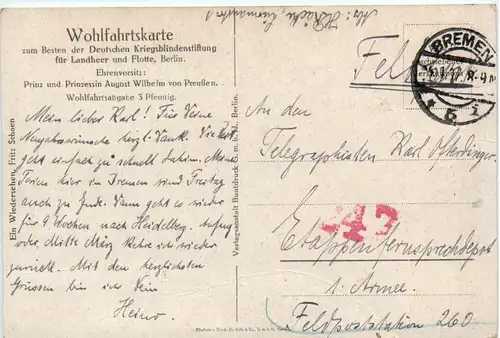 Wohlfahrtskarte
zum Besten der Deutschen Kriegsblindenstiftung
für Landheer und Flotte, Berlin.
Ehrenvorsitz:
Prinz und Prinzessin August Wilhelm von Preußen.
Wohlfahrtsabgabe 3 Pfennig.
Mein lieber Karl! Für Deine
Neujahrswünsche herzl. Dank.
geht es so schnell dahin. Meine
Ferien hier in Bremen sind Freitag
auch zu Ende. Dann geht es wieder
für 9 Wochen nach Heidelberg. Anfang
oder Mitte März kehre ich wieder
zurück. Mit den herzlichsten
Grüssen bin ich Dein
Heino.
Ein Wiedersehen, Fritz Schoen
Verlagsanstalt Buntdruck G. m. b. H., Berlin.
Abs: H.
BREMEN
8-9N
5
1
An den
Telegraphisten Karl Ofterdinger.
43
Etappenfernsprechdepot
1. Armee.
Feldpoststation 260